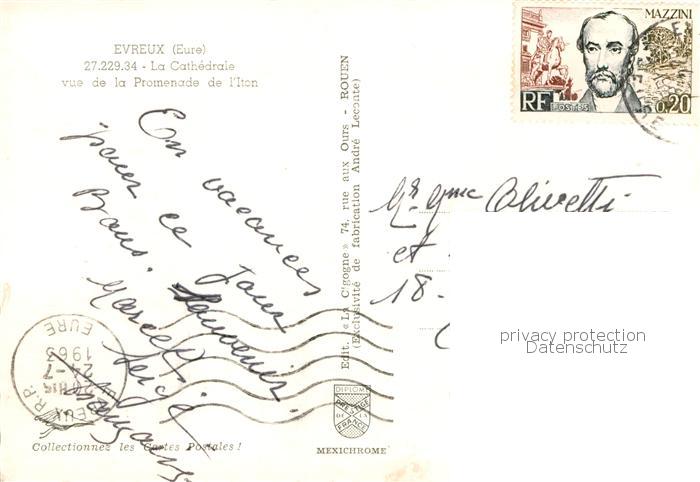 EVREUX (Eure)
27.229.34 - La Cathédrale
vue de la Promenade de l'Iton
En vacances
pour ce jour
Bons
Souvenirs
Marcel
Serge
Edit. « La Cigogne » 74, rue aux Ours - ROUEN
(Exclusivité de fabrication André Leconte)
MAZZINI
RF
POSTES
0,20
Mr Mme Olivetti
et
18-
privacy protection
Datenschutz
EVREUX R.P.
24-7
1963
EURE
DIPLOME
PRESTIGE
DE LA
FRANCE
Collectionnez les Cartes Postales !
MEXICHROME